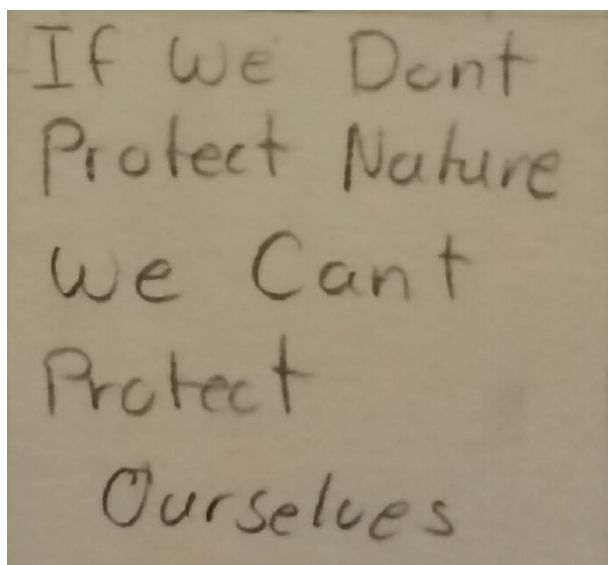 If We Dont
Protect Nature
We Cant
Protect
Ourselves